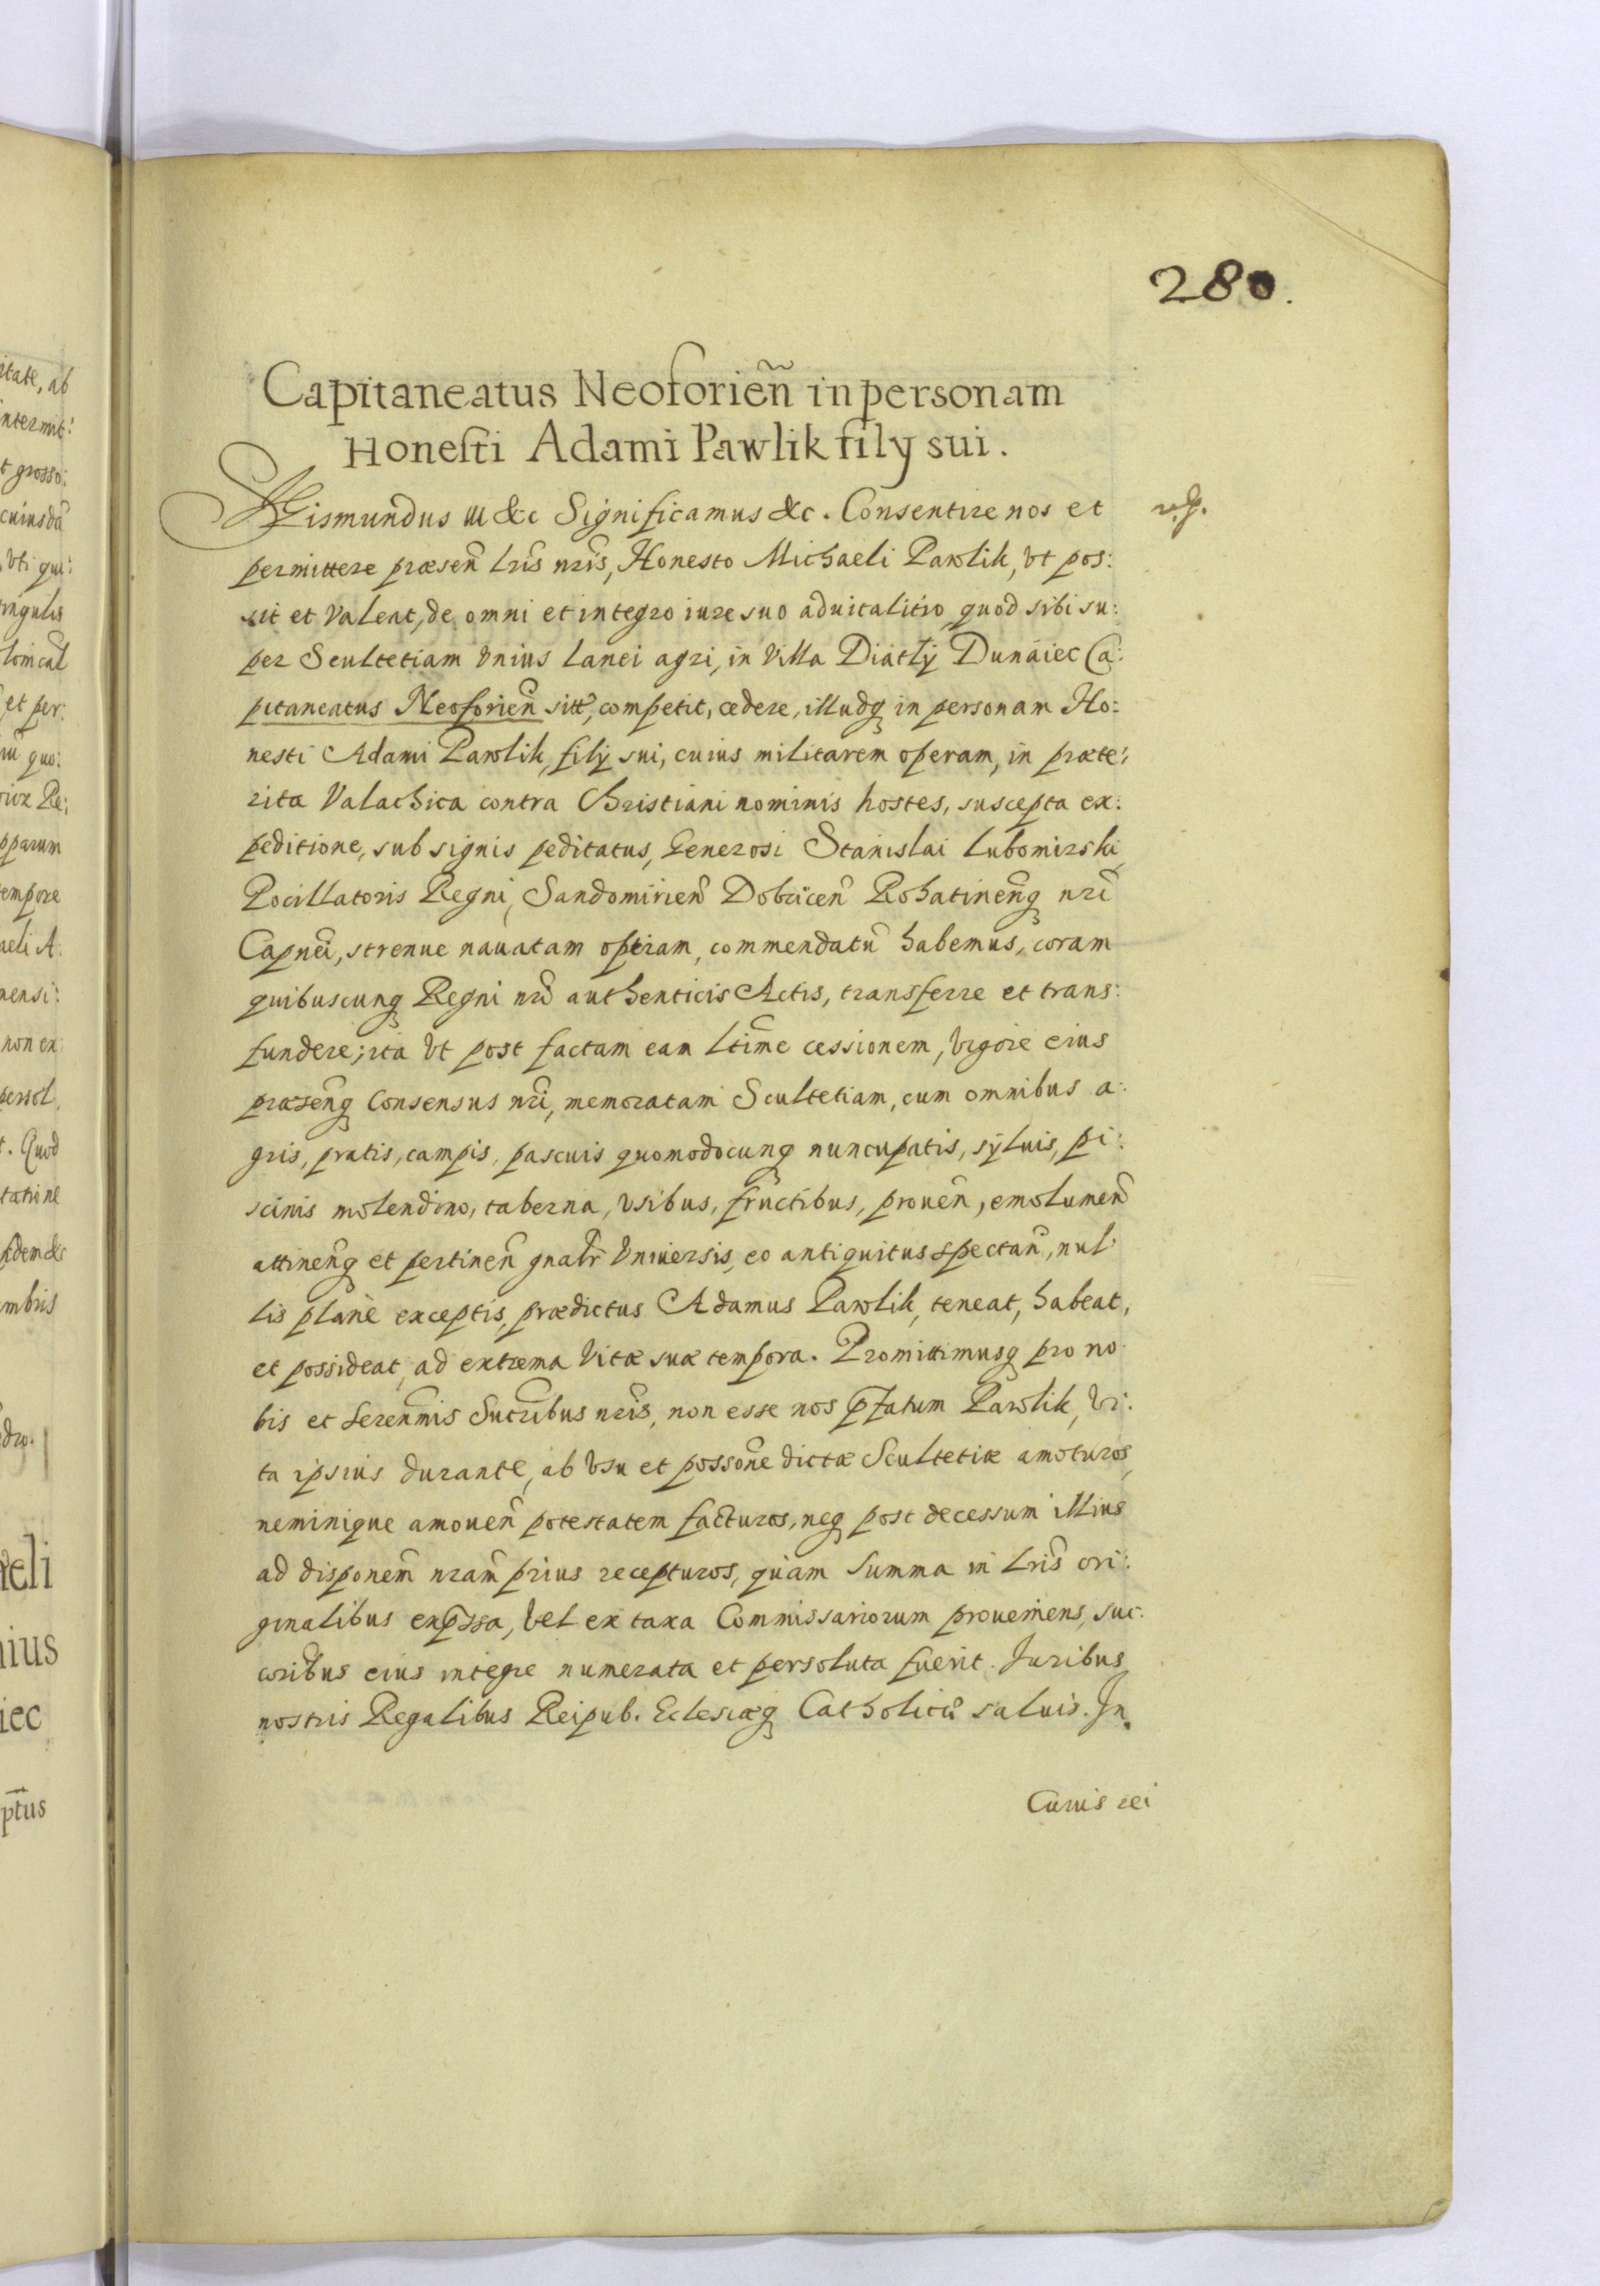 280.
Capitaneatus Neoforieñ in personam
Honesti Adami Pawlik fily sui.
Sigismundus III &c Significamus &c. Consentire nos et
permittere præseñ Lris nris, Honesto Michaeli Pawlik, vt pos:
sit et valeat, de omni et integro iure suo aduitalitio quod sibi su:
per Scultetiam vnius lanei agri, in villa Diatly Dunaiec Ca:
pitaneatus Neoforieñ sitt, competit, cedere, illudq in personam Ho:
nesti Adami Pawlik, fily sui, cuius militarem operam, in præte:
rita Valachica contra Christiani nominis hostes, suscepta ex:
peditione, sub signis peditatus, Generosi Stanislai Lubomirski
Pocillatoris Regni, Sandomirieñ Dobcziceñ Rohatineñq nri
Capnei, strenue nauatam operam, commendatũ habemus, coram
quibuscunq Regni nri authenticis Actis, transferre et trans:
fundere; ita vt post factam eam Ltime cessionem, vigore eius
præseñq Consensus nri, memoratam Scultetiam, cum omnibus a:
gris, pratis, campis, pascuis quomodocunq nuncupatis, syluis, pi:
scinis molendino, taberna, vsibus, fructibus, proueñ, emolumeñ
attineñq et pertineñ gnalr vniuersis, eo antiquitus spectañ, nul:
lis plane exceptis, prædictus Adamus Pawlik, teneat, habeat,
et possideat, ad extrema vitæ suæ tempora. Promittimusq pro no
bis et Serenmis Sucribus nris, non esse nos pfatum Pawlik, vi:
ta ipsius durante, ab vsu et possone dictæ Scultetiæ amoturos,
neminique amoueñ potestatem facturos, neq post decessum illius
ad disponem nram prius recepturos, quam summa in Lris ori:
ginalibus expssa, vel ex taxa Commissariorum proueniens, suc:
coribus eius integre numerata et persoluta fuerit. Juribus
nostris Regalibus Reipub. Eclesiæq Catholicæ saluis. In
Cuius rei